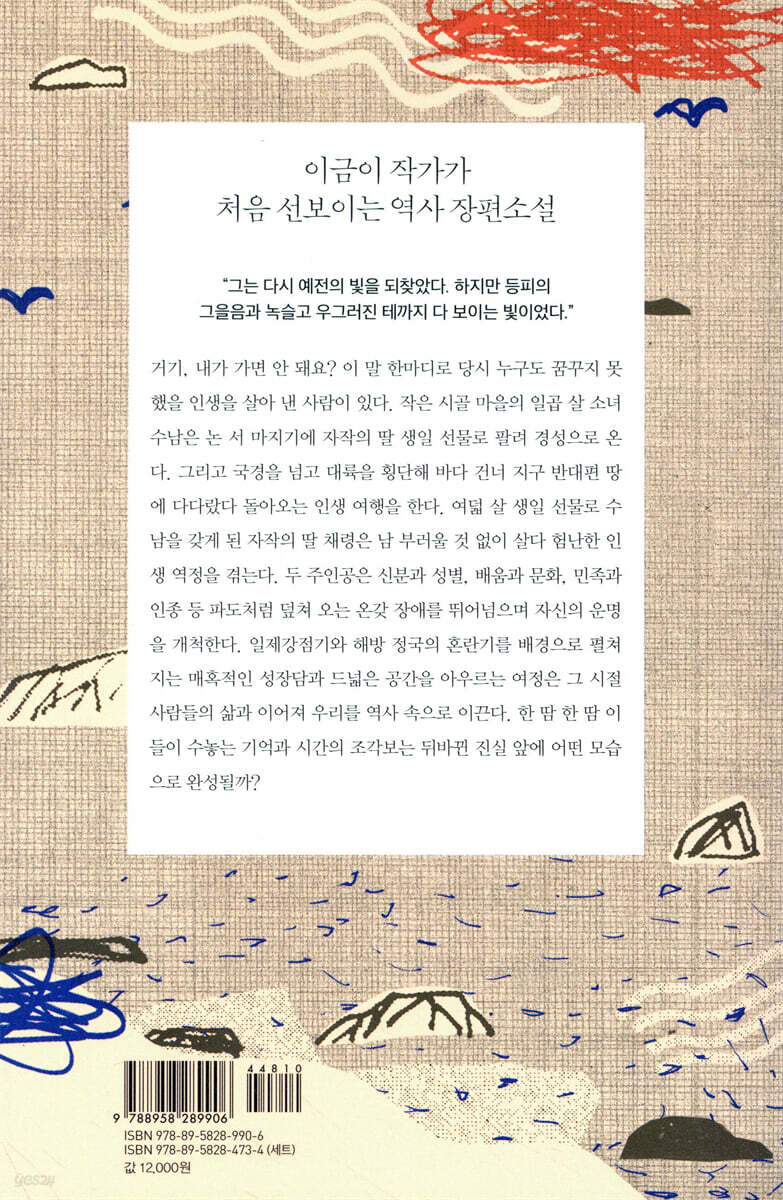 이금이 작가가
처음 선보이는 역사 장편소설
“그는 다시 예전의 빛을 되찾았다. 하지만 등피의
그을음과 녹슬고 우그러진 테까지 다 보이는 빛이었다.”
거기, 내가 가면 안 돼요? 이 말 한마디로 당시 누구도 꿈꾸지 못
했을 인생을 살아 낸 사람이 있다. 작은 시골 마을의 일곱 살 소녀
수남은 논 서 마지기에 자작의 딸 생일 선물로 팔려 경성으로 온
다. 그리고 국경을 넘고 대륙을 횡단해 바다 건너 지구 반대편 땅
에 다다랐다 돌아오는 인생 여행을 한다. 여덟 살 생일 선물로 수
남을 갖게 된 자작의 딸 채령은 남 부러울 것 없이 살다 험난한 인
생 역정을 겪는다. 두 주인공은 신분과 성별, 배움과 문화, 민족과
인종 등 파도처럼 덮쳐 오는 온갖 장애를 뛰어넘으며 자신의 운명
을 개척한다. 일제강점기와 해방 정국의 혼란기를 배경으로 펼쳐
지는 매혹적인 성장담과 드넓은 공간을 아우르는 여정은 그 시절
사람들의 삶과 이어져 우리를 역사 속으로 이끈다. 한 땀 한 땀 이
들이 수놓는 기억과 시간의 조각보는 뒤바뀐 진실 앞에 어떤 모습
으로 완성될까?
44810
9 788958 289906
ISBN 978-89-5828-990-6
ISBN 978-89-5828-473-4 (세트)
값 12,000원
yes24